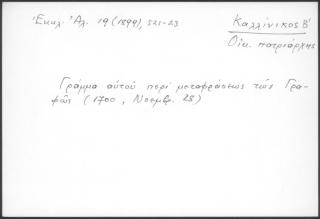 Ἐκκλ. Ἀλ. 19 (1899), 521-23
Καλλίνικος Β'
Οἰκ. πατριάρχης
Γράμμα αὐτοῦ περί μεταφράσεως τῆς Γρα-
φῆς (1700, Νοεμβρ. 28)